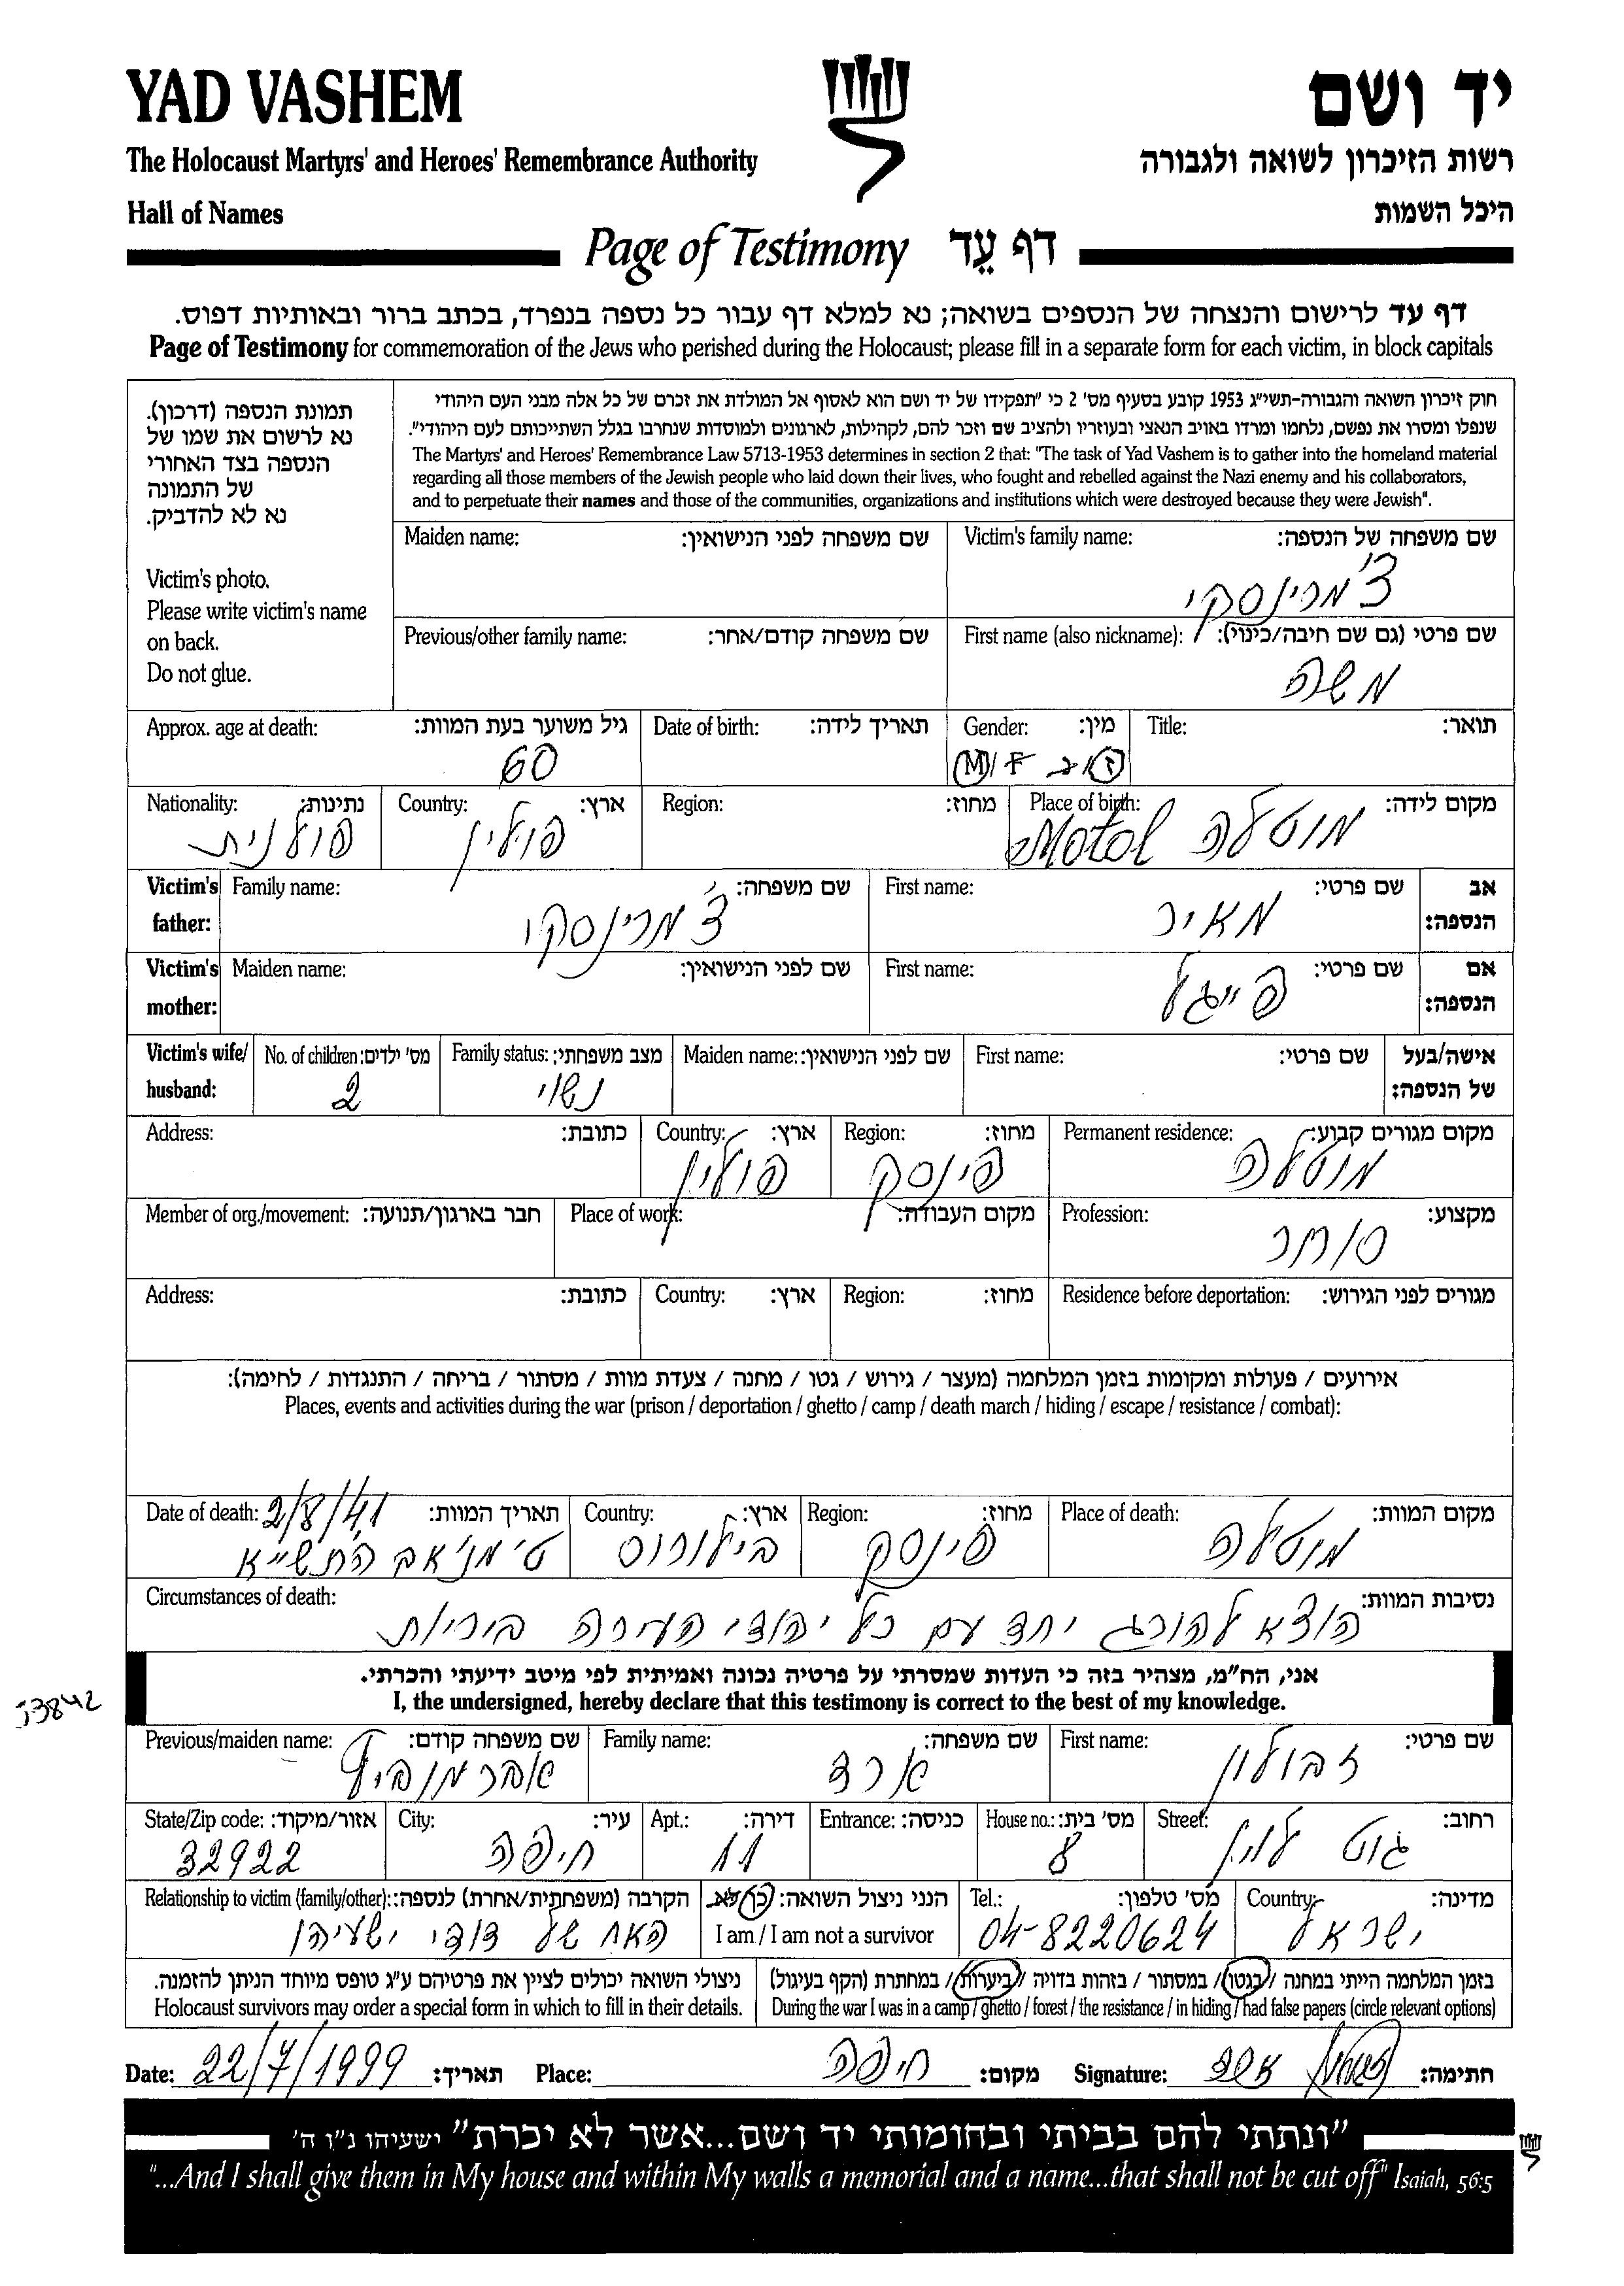 YAD VASHEM
יד ושם
The Holocaust Martyrs' and Heroes' Remembrance Authority
רשות הזיכרון לשואה ולגבורה
Hall of Names
היכל השמות
Page of Testimony דף עֵד
דף עד לרישום והנצחה של הנספים בשואה; נא למלא דף עבור כל נספה בנפרד, בכתב ברור ובאותיות דפוס.
Page of Testimony for commemoration of the Jews who perished during the Holocaust; please fill in a separate form for each victim, in block capitals
תמונת הנספה (דרכון).
נא לרשום את שמו של
הנספה בצד האחורי
של התמונה
נא לא להדביק.
Victim's photo.
Please write victim's name
on back.
Do not glue.
חוק זיכרון השואה והגבורה-תשי״ג 1953 קובע בסעיף מס' 2 כי "תפקידו של יד ושם הוא לאסוף אל המולדת את זכרם של כל אלה מבני העם היהודי
שנפלו ומסרו את נפשם, נלחמו ומרדו באויב הנאצי ובעוזריו ולהציב שם וזכר להם, לקהילות, לארגונים ולמוסדות שנחרבו בגלל השתייכותם לעם היהודי".
The Martyrs' and Heroes' Remembrance Law 5713-1953 determines in section 2 that: "The task of Yad Vashem is to gather into the homeland material
regarding all those members of the Jewish people who laid down their lives, who fought and rebelled against the Nazi enemy and his collaborators,
and to perpetuate their names and those of the communities, organizations and institutions which were destroyed because they were Jewish".
Victim's family name: שם משפחה של הנספה:
צ'מרינסקי
Maiden name: שם משפחה לפני הנישואין:
First name (also nickname): שם פרטי (גם שם חיבה/כינוי):
משה
Previous/other family name: שם משפחה קודם/אחר:
Title: תואר:
Gender: מין:
M/F ז/נ
Date of birth: תאריך לידה:
Approx. age at death: גיל משוער בעת המוות:
60
Place of birth: מקום לידה:
מוטלה Motol
Region: מחוז:
Country: ארץ:
פולין
Nationality: נתינות:
פולנית
Victim's father: אב הנספה:
First name: שם פרטי:
מאיר
Family name: שם משפחה:
צ'מרינסקי
Victim's mother: אם הנספה:
First name: שם פרטי:
פייגל
Maiden name: שם לפני הנישואין:
Victim's wife/husband: אישה/בעל של הנספה:
First name: שם פרטי:
Maiden name: שם לפני הנישואין:
Family status: מצב משפחתי:
נשוי
No. of children: מס' ילדים:
2
Permanent residence: מקום מגורים קבוע:
מוטלה
Region: מחוז:
פינסק
Country: ארץ:
פולין
Address: כתובת:
Profession: מקצוע:
סוחר
Place of work: מקום העבודה:
Member of org./movement: חבר בארגון/תנועה:
Residence before deportation: מגורים לפני הגירוש:
Region: מחוז:
Country: ארץ:
Address: כתובת:
אירועים / פעולות ומקומות בזמן המלחמה (מעצר / גירוש / גטו / מחנה / צעדת מוות / מסתור / בריחה / התנגדות / לחימה):
Places, events and activities during the war (prison / deportation / ghetto / camp / death march / hiding / escape / resistance / combat):
Place of death: מקום המוות:
מוטלה
Region: מחוז:
פינסק
Country: ארץ:
בילורוס
Date of death: תאריך המוות:
2/8/41
ט' מנ'אב התש"א
Circumstances of death: נסיבות המוות:
הוצא להורג יחד עם כל יהודי העירה ביריות
אני, הח״מ, מצהיר בזה כי העדות שמסרתי על פרטיה נכונה ואמיתית לפי מיטב ידיעתי והכרתי.
I, the undersigned, hereby declare that this testimony is correct to the best of my knowledge.
First name: שם פרטי:
זבולון
Family name: שם משפחה:
ארד
Previous/maiden name: שם משפחה קודם:
אברמוביץ
Street: רחוב:
גוט לוין
House no.: מס' בית:
8
Entrance: כניסה:
Apt.: דירה:
11
City: עיר:
חיפה
State/Zip code: אזור/מיקוד:
32922
Country: מדינה:
ישראל
Tel.: מס' טלפון:
04-8220624
הנני ניצול השואה: כן/לא
I am / I am not a survivor
Relationship to victim (family/other): הקרבה (משפחתית/אחרת) לנספה:
האח של דודי ישעיהו
בזמן המלחמה הייתי במחנה / בגטו / במסתור / בזהות בדויה / ביערות / במחתרת (הקף בעיגול)
During the war I was in a camp / ghetto / forest / the resistance / in hiding / had false papers (circle relevant options)
ניצולי השואה יכולים לציין את פרטיהם ע״ג טופס מיוחד הניתן להזמנה.
Holocaust survivors may order a special form in which to fill in their details.
Date: 22/7/1999 תאריך:
Place: חיפה מקום:
Signature: חתימה:
"ונתתי להם בביתי ובחומותי יד ושם...אשר לא יכרת" ישעיהו נ״ו ה'
"...And I shall give them in My house and within My walls a memorial and a name...that shall not be cut off" Isaiah, 56:5